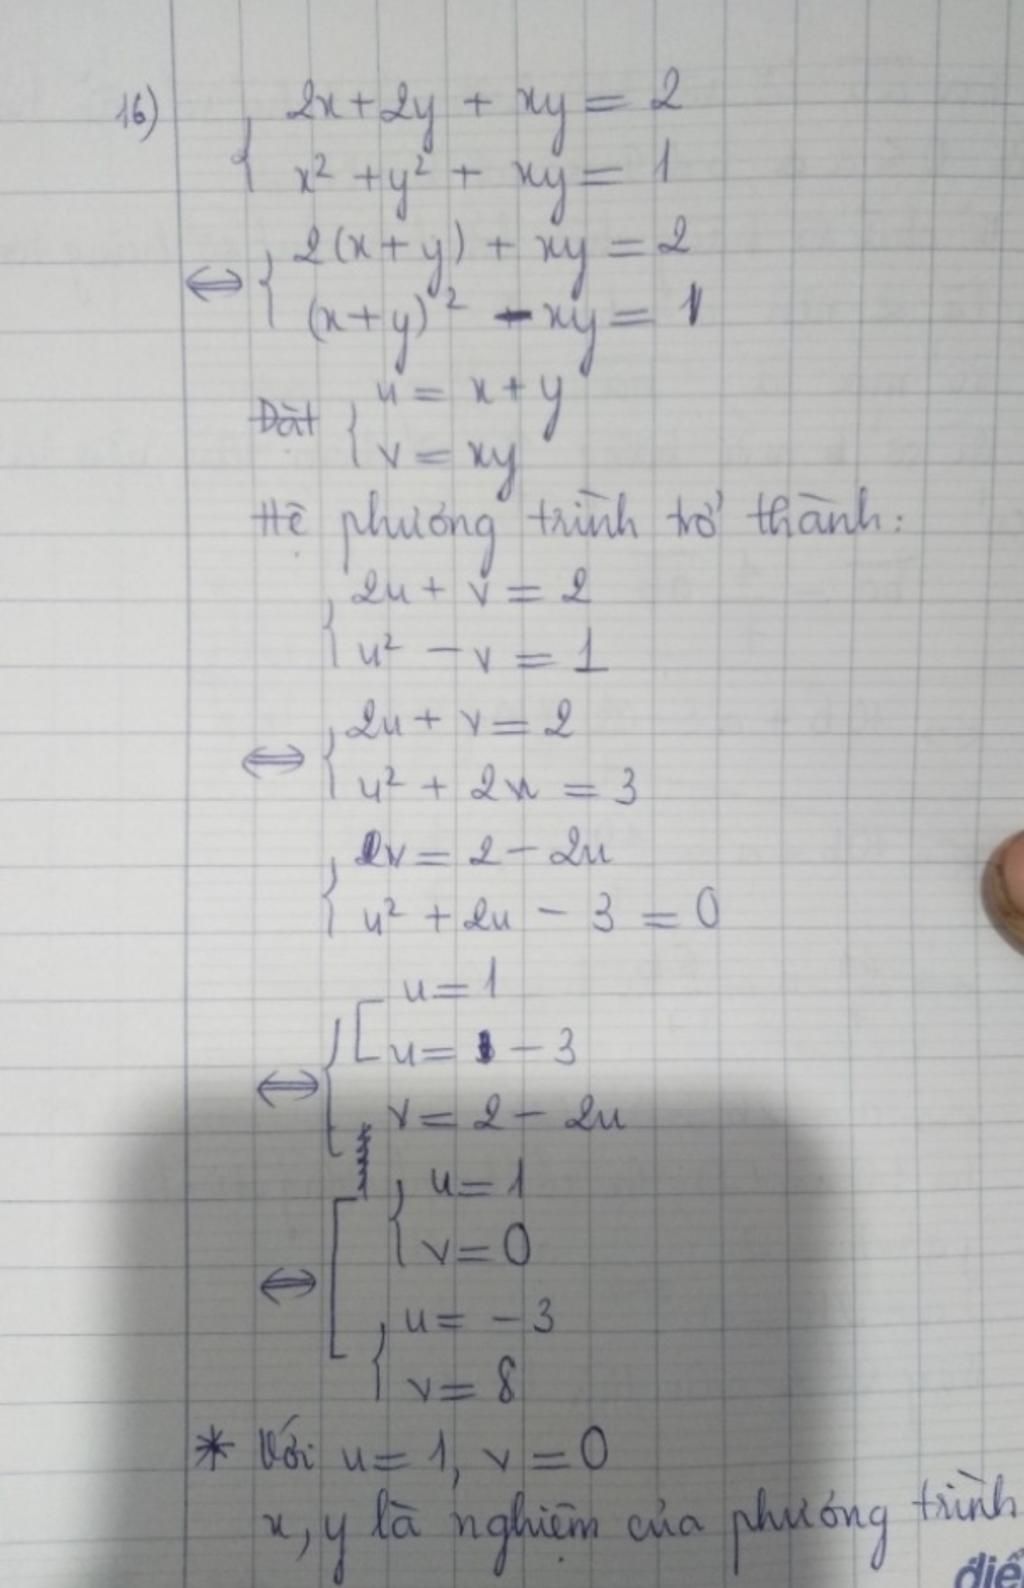 16) { 2x + 2y + xy = 2
x² + y² + xy = 1
⇔ { 2(x + y) + xy = 2
(x + y)² - xy = 1
Đặt { u = x + y
v = xy
Hệ phương trình trở thành:
{ 2u + v = 2
u² - v = 1
⇔ { 2u + v = 2
u² + 2u = 3
{ v = 2 - 2u
u² + 2u - 3 = 0
⇔ { [ u = 1
u = - 3
v = 2 - 2u
⇔ [ { u = 1
v = 0
{ u = - 3
v = 8
* Với u = 1, v = 0
x, y là nghiệm của phương trình